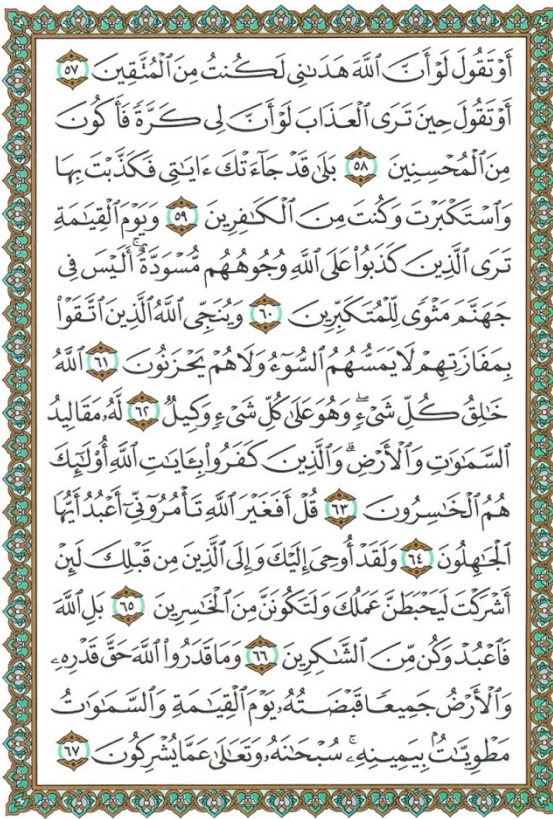 أَوْ تَقُولَ لَوْ أَنَّ ٱللَّهَ هَدَىٰنِى لَكُنتُ مِنَ ٱلْمُتَّقِينَ ٥٧
أَوْ تَقُولَ حِينَ تَرَى ٱلْعَذَابَ لَوْ أَنَّ لِى كَرَّةً فَأَكُونَ
مِنَ ٱلْمُحْسِنِينَ ٥٨ بَلَىٰ قَدْ جَآءَتْكَ ءَايَـٰتِى فَكَذَّبْتَ بِهَا
وَٱسْتَكْبَرْتَ وَكُنتَ مِنَ ٱلْكَـٰفِرِينَ ٥٩ وَيَوْمَ ٱلْقِيَـٰمَةِ
تَرَى ٱلَّذِينَ كَذَبُوا۟ عَلَى ٱللَّهِ وُجُوهُهُم مُّسْوَدَّةٌ ۚ أَلَيْسَ فِى
جَهَنَّمَ مَثْوًى لِّلْمُتَكَبِّرِينَ ٦٠ وَيُنَجِّى ٱللَّهُ ٱلَّذِينَ ٱتَّقَوْا۟
بِمَفَازَتِهِمْ لَا يَمَسُّهُمُ ٱلسُّوٓءُ وَلَا هُمْ يَحْزَنُونَ ٦١ ٱللَّهُ
خَـٰلِقُ كُلِّ شَىْءٍ ۖ وَهُوَ عَلَىٰ كُلِّ شَىْءٍ وَكِيلٌ ٦٢ لَّهُۥ مَقَالِيدُ
ٱلسَّمَـٰوَٰتِ وَٱلْأَرْضِ ۗ وَٱلَّذِينَ كَفَرُوا۟ بِـَٔايَـٰتِ ٱللَّهِ أُو۟لَـٰٓئِكَ
هُمُ ٱلْخَـٰسِرُونَ ٦٣ قُلْ أَفَغَيْرَ ٱللَّهِ تَأْمُرُوٓنِّىٓ أَعْبُدُ أَيُّهَا
ٱلْجَـٰهِلُونَ ٦٤ وَلَقَدْ أُوحِىَ إِلَيْكَ وَإِلَى ٱلَّذِينَ مِن قَبْلِكَ لَئِنْ
أَشْرَكْتَ لَيَحْبَطَنَّ عَمَلُكَ وَلَتَكُونَنَّ مِنَ ٱلْخَـٰسِرِينَ ٦٥ بَلِ ٱللَّهَ
فَٱعْبُدْ وَكُن مِّنَ ٱلشَّـٰكِرِينَ ٦٦ وَمَا قَدَرُوا۟ ٱللَّهَ حَقَّ قَدْرِهِۦ
وَٱلْأَرْضُ جَمِيعًا قَبْضَتُهُۥ يَوْمَ ٱلْقِيَـٰمَةِ وَٱلسَّمَـٰوَٰتُ
مَطْوِيَّـٰتٌۢ بِيَمِينِهِۦ ۚ سُبْحَـٰنَهُۥ وَتَعَـٰلَىٰ عَمَّا يُشْرِكُونَ ٦٧